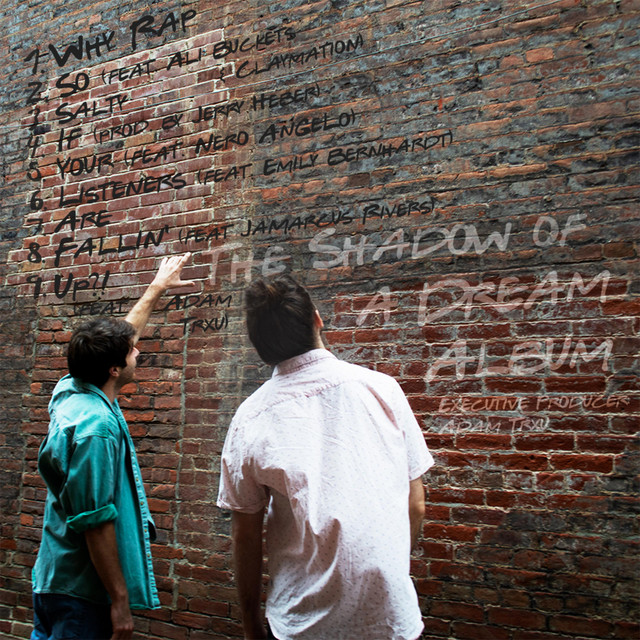 1. WHY RAP
2. SO (FEAT. ALI BUCKETS
CLAYMATION)
3. SALTY
4. IF (PROD. BY JERRY HEBER)
5. YOUR (FEAT. NERO ANGELO)
6. LISTENERS (FEAT. EMILY BERNHARDT)
7. ARE
8. FALLIN' (FEAT JAMARCUS RIVERS)
9. UP?!
(FEAT. ADAM
TRXU)
THE SHADOW OF
A DREAM
ALBUM
EXECUTIVE PRODUCER
ADAM TRXU